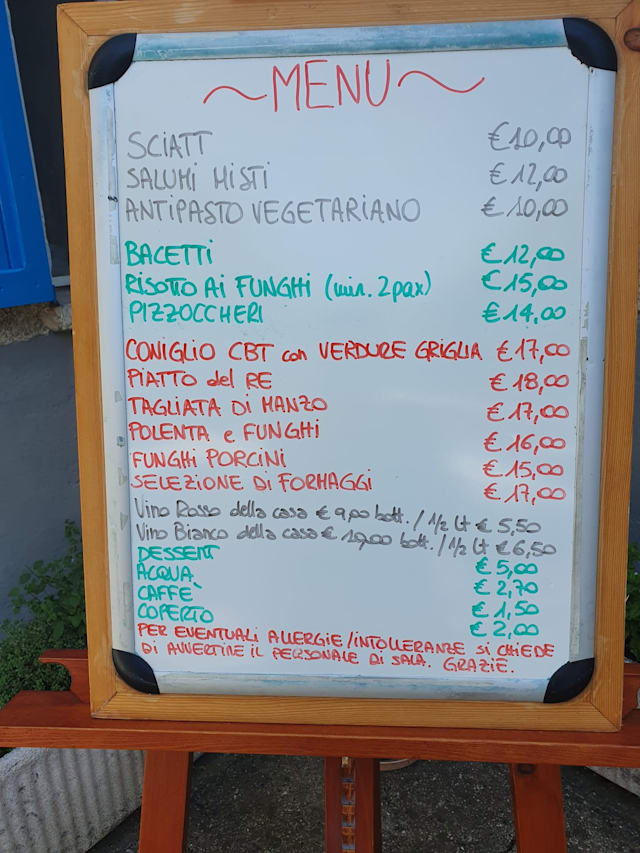 ~MENU~
SCIATT €10,00
SALUMI MISTI €12,00
ANTIPASTO VEGETARIANO €10,00
BACETTI €12,00
RISOTTO Ai FUNGHI (min. 2pax) €15,00
PIZZOCCHERI €14,00
CONIGLIO CBT con VERDURE GRIGLIA €17,00
PIATTO del RE €18,00
TAGLIATA Di MANZO €17,00
POLENTA e FUNGHI €16,00
FUNGHI PORCINI €15,00
SELEZIONE Di FORMAGGI €17,00
Vino Rosso della casa € 9,00 bott. / 1/2 Lt € 5,50
Vino Bianco della casa € 10,00 bott. / 1/2 Lt € 6,50
DESSERT €5,00
ACQUA €2,70
CAFFE' €1,50
COPERTO €2,00
PER EVENTUALI ALLERGIE/INTOLLERANZE Si CHIEDE
Di AVVERTIRE IL PERSONALE Di SALA. GRAZIE.